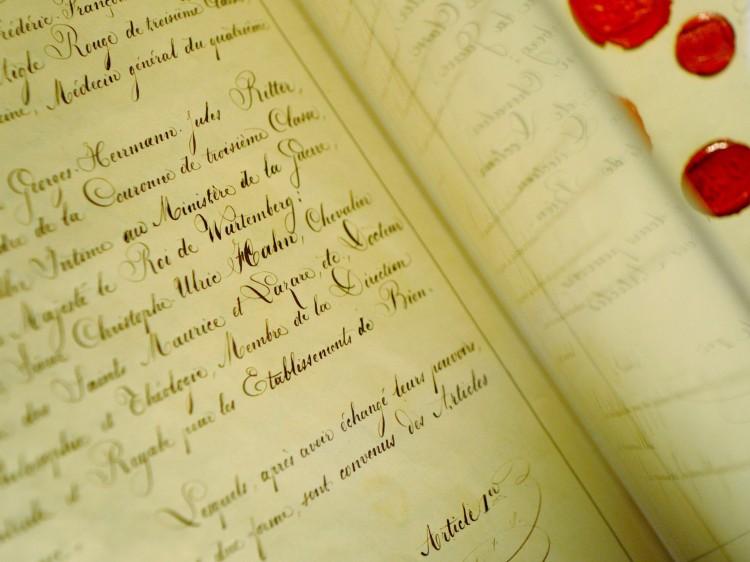 Frédéric. François
Aigle Rouge de troisième Classe,
Médecin général du quatrième
Georges. Herrmann. Jules Ritter,
de la Couronne de troisième Classe,
Intime au Ministère de la Guerre,
Majesté le Roi de Würtemberg:
Sieur Christophe. Ulric Hahn, Chevalier
des Saints Maurice et Lazare, de, Docteur
Philosophie et Théologie, Membre de la Direction
Royale pour les Etablissements de Bien-
Lesquels, après avoir échangé leurs pouvoirs,
due forme, sont convenus des Articles
Article 1er